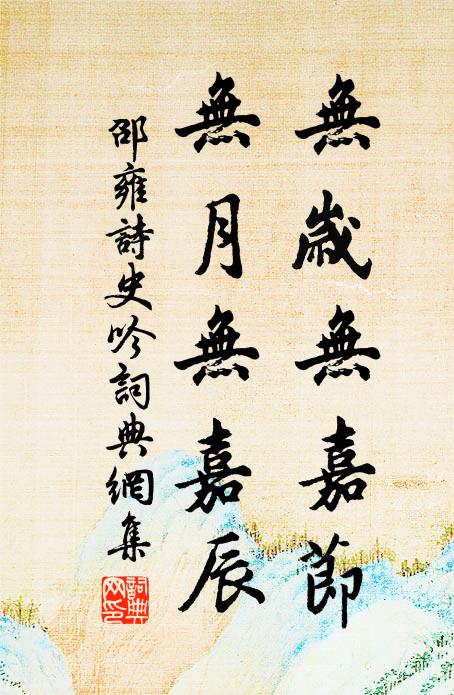 無歲無嘉節
無月無嘉辰
邵雍詩史吟詞典網集
詞典